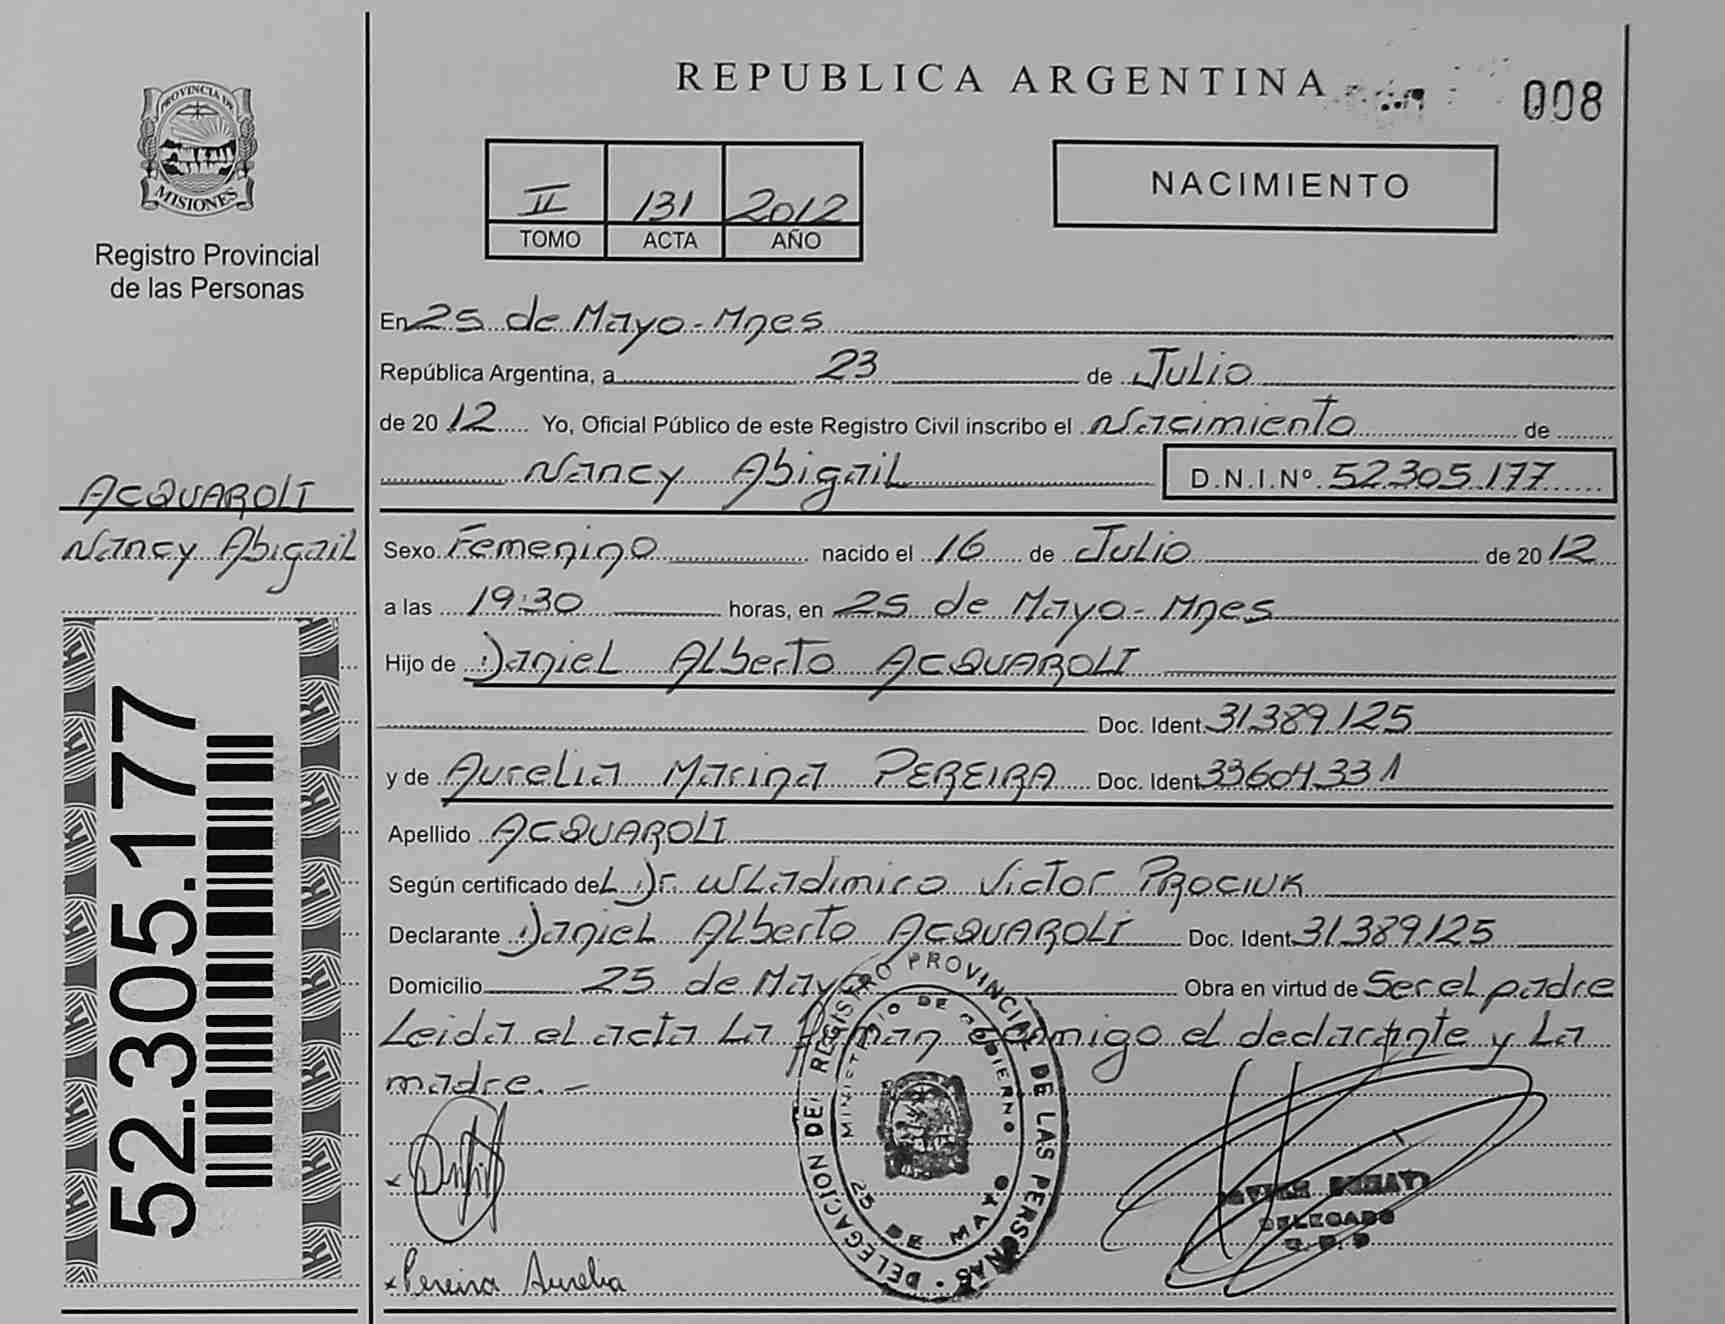 REPUBLICA ARGENTINA
008
PROVINCIA DE
MISIONES
Registro Provincial
de las Personas
II 131 2012
TOMO ACTA AÑO
NACIMIENTO
En 25 de Mayo - Mnes
República Argentina, a 23 de Julio
de 2012 Yo, Oficial Público de este Registro Civil inscribo el Nacimiento de
Nancy Abigail D.N.I.Nº 52.305.177
ACQUAROLI
Nancy Abigail
Sexo Femenino nacido el 16 de Julio de 2012
a las 19:30 horas, en 25 de Mayo - Mnes
Hijo de Daniel Alberto ACQUAROLI
Doc. Ident. 31.389.125
y de Aurelia Marina PEREIRA Doc. Ident 33604331
Apellido ACQUAROLI
Según certificado del Dr. Wladimiro Victor PROCIUK
Declarante Daniel Alberto ACQUAROLI Doc. Ident 31.389.125
Domicilio 25 de Mayo Obra en virtud de Ser el padre
Leida el acta La firman conmigo el declarante y La
madre. -
52.305.177
DELEGACION DEL REGISTRO PROVINCIAL DE LAS PERSONAS
MINISTERIO DE GOBIERNO
25 DE MAYO
DELEGADO
x Pereira Aurelia